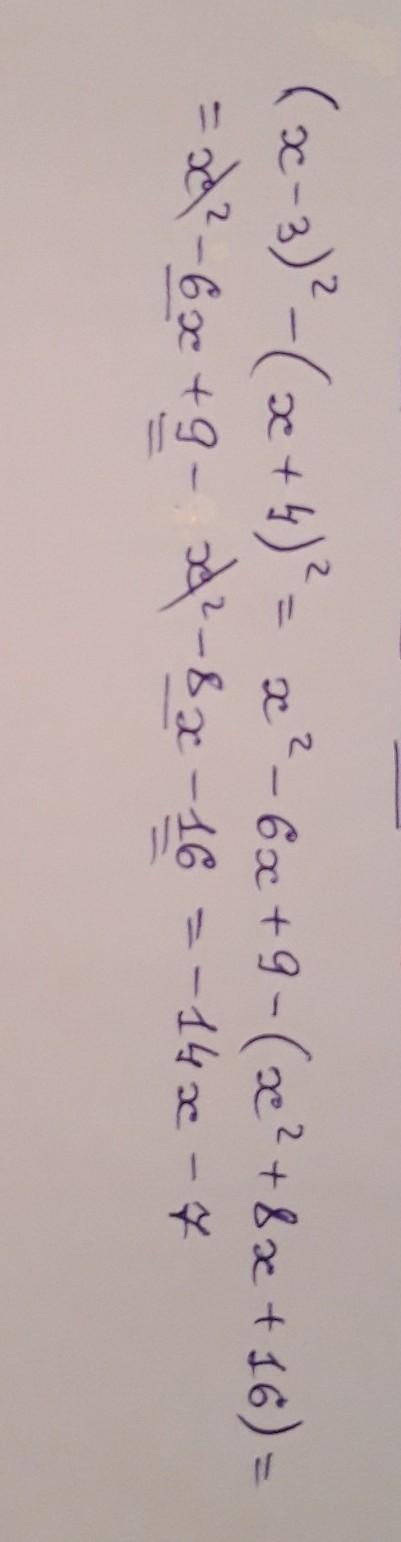 (x-3)² - (x+4)² = x² - 6x + 9 - (x² + 8x + 16) =
= x² - 6x + 9 - x² - 8x - 16 = -14x - 7